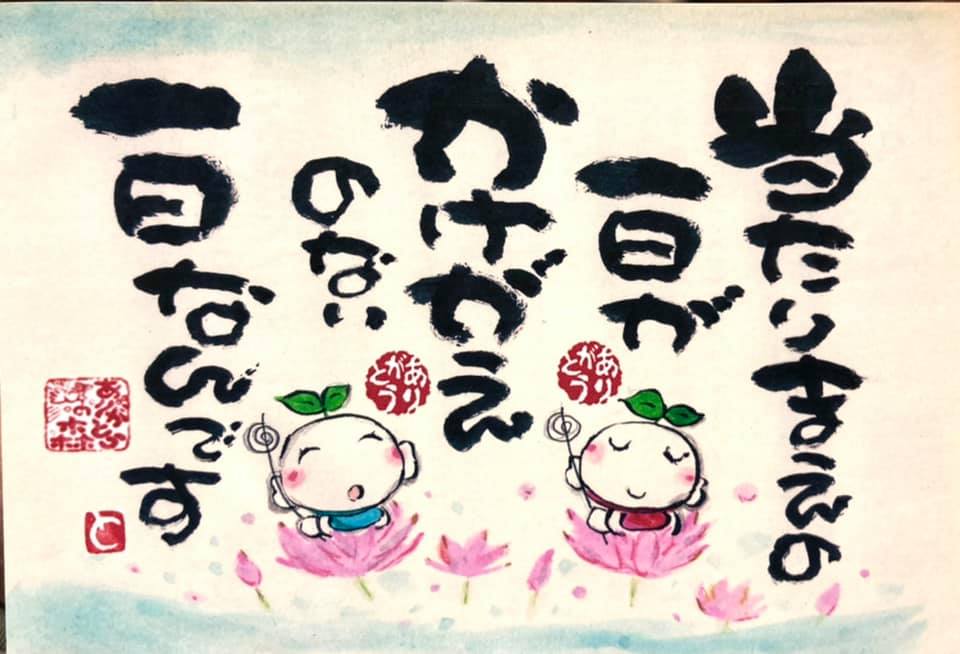 当たりまえの
一日が
かけがえ
のない
一日なんです
ありがとう
ありがとう